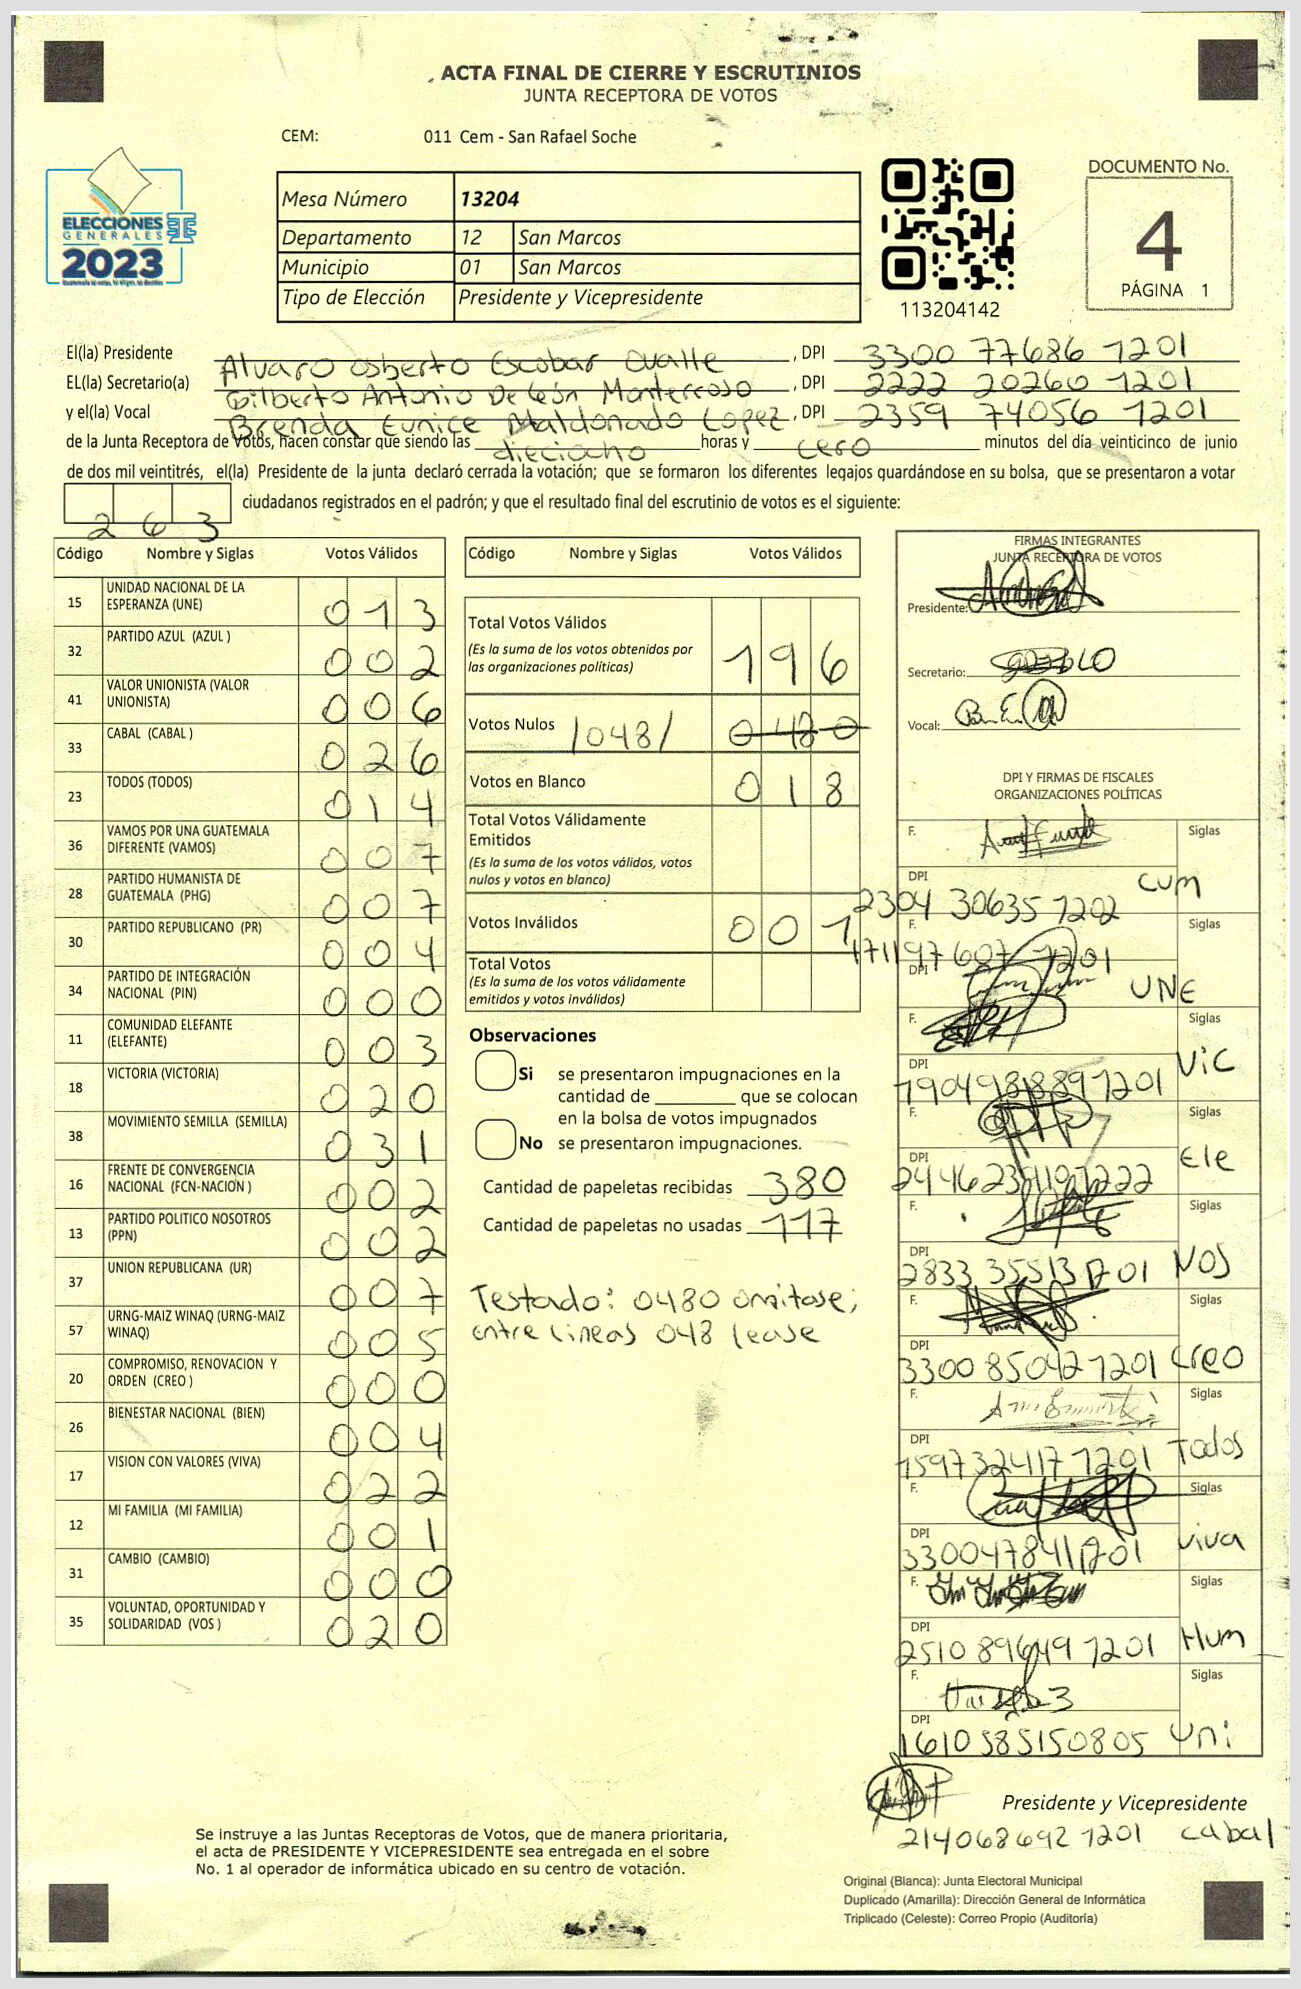 ACTA FINAL DE CIERRE Y ESCRUTINIOS
JUNTA RECEPTORA DE VOTOS
CEM: 011 Cem - San Rafael Soche
ELECCIONES
GENERALES
2023
Mesa Número 13204
Departamento 12 San Marcos
Municipio 01 San Marcos
Tipo de Elección Presidente y Vicepresidente
113204142
DOCUMENTO No.
4
PÁGINA 1
El(la) Presidente Alvaro Osberto Escobar Ovalle, DPI 3300 77686 1201
EL(la) Secretario(a) Gilberto Antonio De León Monterroso, DPI 2222 20260 1201
y el(la) Vocal Brenda Eunice Maldonado Lopez, DPI 2359 74056 1201
de la Junta Receptora de Votos, hacen constar que siendo las dieciocho horas y cero minutos del día veinticinco de junio
de dos mil veintitrés, el(la) Presidente de la junta declaró cerrada la votación; que se formaron los diferentes legajos guardándose en su bolsa, que se presentaron a votar
263 ciudadanos registrados en el padrón; y que el resultado final del escrutinio de votos es el siguiente:
Código Nombre y Siglas Votos Válidos
15 UNIDAD NACIONAL DE LA ESPERANZA (UNE) 013
32 PARTIDO AZUL (AZUL ) 002
41 VALOR UNIONISTA (VALOR UNIONISTA) 006
33 CABAL (CABAL ) 026
23 TODOS (TODOS) 014
36 VAMOS POR UNA GUATEMALA DIFERENTE (VAMOS) 007
28 PARTIDO HUMANISTA DE GUATEMALA (PHG) 007
30 PARTIDO REPUBLICANO (PR) 004
34 PARTIDO DE INTEGRACIÓN NACIONAL (PIN) 000
11 COMUNIDAD ELEFANTE (ELEFANTE) 003
18 VICTORIA (VICTORIA) 020
38 MOVIMIENTO SEMILLA (SEMILLA) 031
16 FRENTE DE CONVERGENCIA NACIONAL (FCN-NACION ) 002
13 PARTIDO POLITICO NOSOTROS (PPN) 002
37 UNION REPUBLICANA (UR) 007
57 URNG-MAIZ WINAQ (URNG-MAIZ WINAQ) 005
20 COMPROMISO, RENOVACION Y ORDEN (CREO ) 000
26 BIENESTAR NACIONAL (BIEN) 004
17 VISION CON VALORES (VIVA) 022
12 MI FAMILIA (MI FAMILIA) 001
31 CAMBIO (CAMBIO) 000
35 VOLUNTAD, OPORTUNIDAD Y SOLIDARIDAD (VOS ) 020
Código Nombre y Siglas Votos Válidos
Total Votos Válidos 196
(Es la suma de los votos obtenidos por
las organizaciones políticas)
Votos Nulos /048/ 0480
Votos en Blanco 018
Total Votos Válidamente
Emitidos
(Es la suma de los votos válidos, votos
nulos y votos en blanco)
Votos Inválidos 001
Total Votos
(Es la suma de los votos válidamente
emitidos y votos inválidos)
Observaciones
Si se presentaron impugnaciones en la
cantidad de ________ que se colocan
en la bolsa de votos impugnados
No se presentaron impugnaciones.
Cantidad de papeletas recibidas 380
Cantidad de papeletas no usadas 117
Testado: 0480 omitase;
entre lineas 048 lease
FIRMAS INTEGRANTES
JUNTA RECEPTORA DE VOTOS
Presidente:
Secretario:
Vocal:
DPI Y FIRMAS DE FISCALES
ORGANIZACIONES POLÍTICAS
F. Siglas
DPI 2304 30635 1202 CUM
F. Siglas
DPI 1711 97 607 1201 UNE
F. Siglas
DPI 1904981889 1201 VIC
F. Siglas
DPI Ele
F. Siglas
DPI 2833 35513 1201 NOS
F. Siglas
DPI 3300 85042 1201 Creo
F. Siglas
DPI 1597 32417 1201 Todos
F. Siglas
DPI 3300478411201 Viva
F. Siglas
DPI 2510 89649 1201 Hum
F. Siglas
DPI 1610 585150805 Uni
Presidente y Vicepresidente
214068692 1201 Cabal
Se instruye a las Juntas Receptoras de Votos, que de manera prioritaria,
el acta de PRESIDENTE Y VICEPRESIDENTE sea entregada en el sobre
No. 1 al operador de informática ubicado en su centro de votación.
Original (Blanca): Junta Electoral Municipal
Duplicado (Amarilla): Dirección General de Informática
Triplicado (Celeste): Correo Propio (Auditoría)